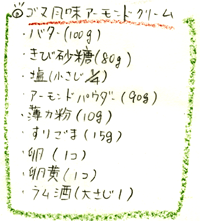 ◎ゴマ風味アーモンドクリーム
・バター(100g)
・きび砂糖(80g)
・塩(小さじ1/4)
・アーモンドパウダー(90g)
・薄力粉(10g)
・すりごま(15g)
・卵(1コ)
・卵黄(1コ)
・ラム酒(大さじ1)